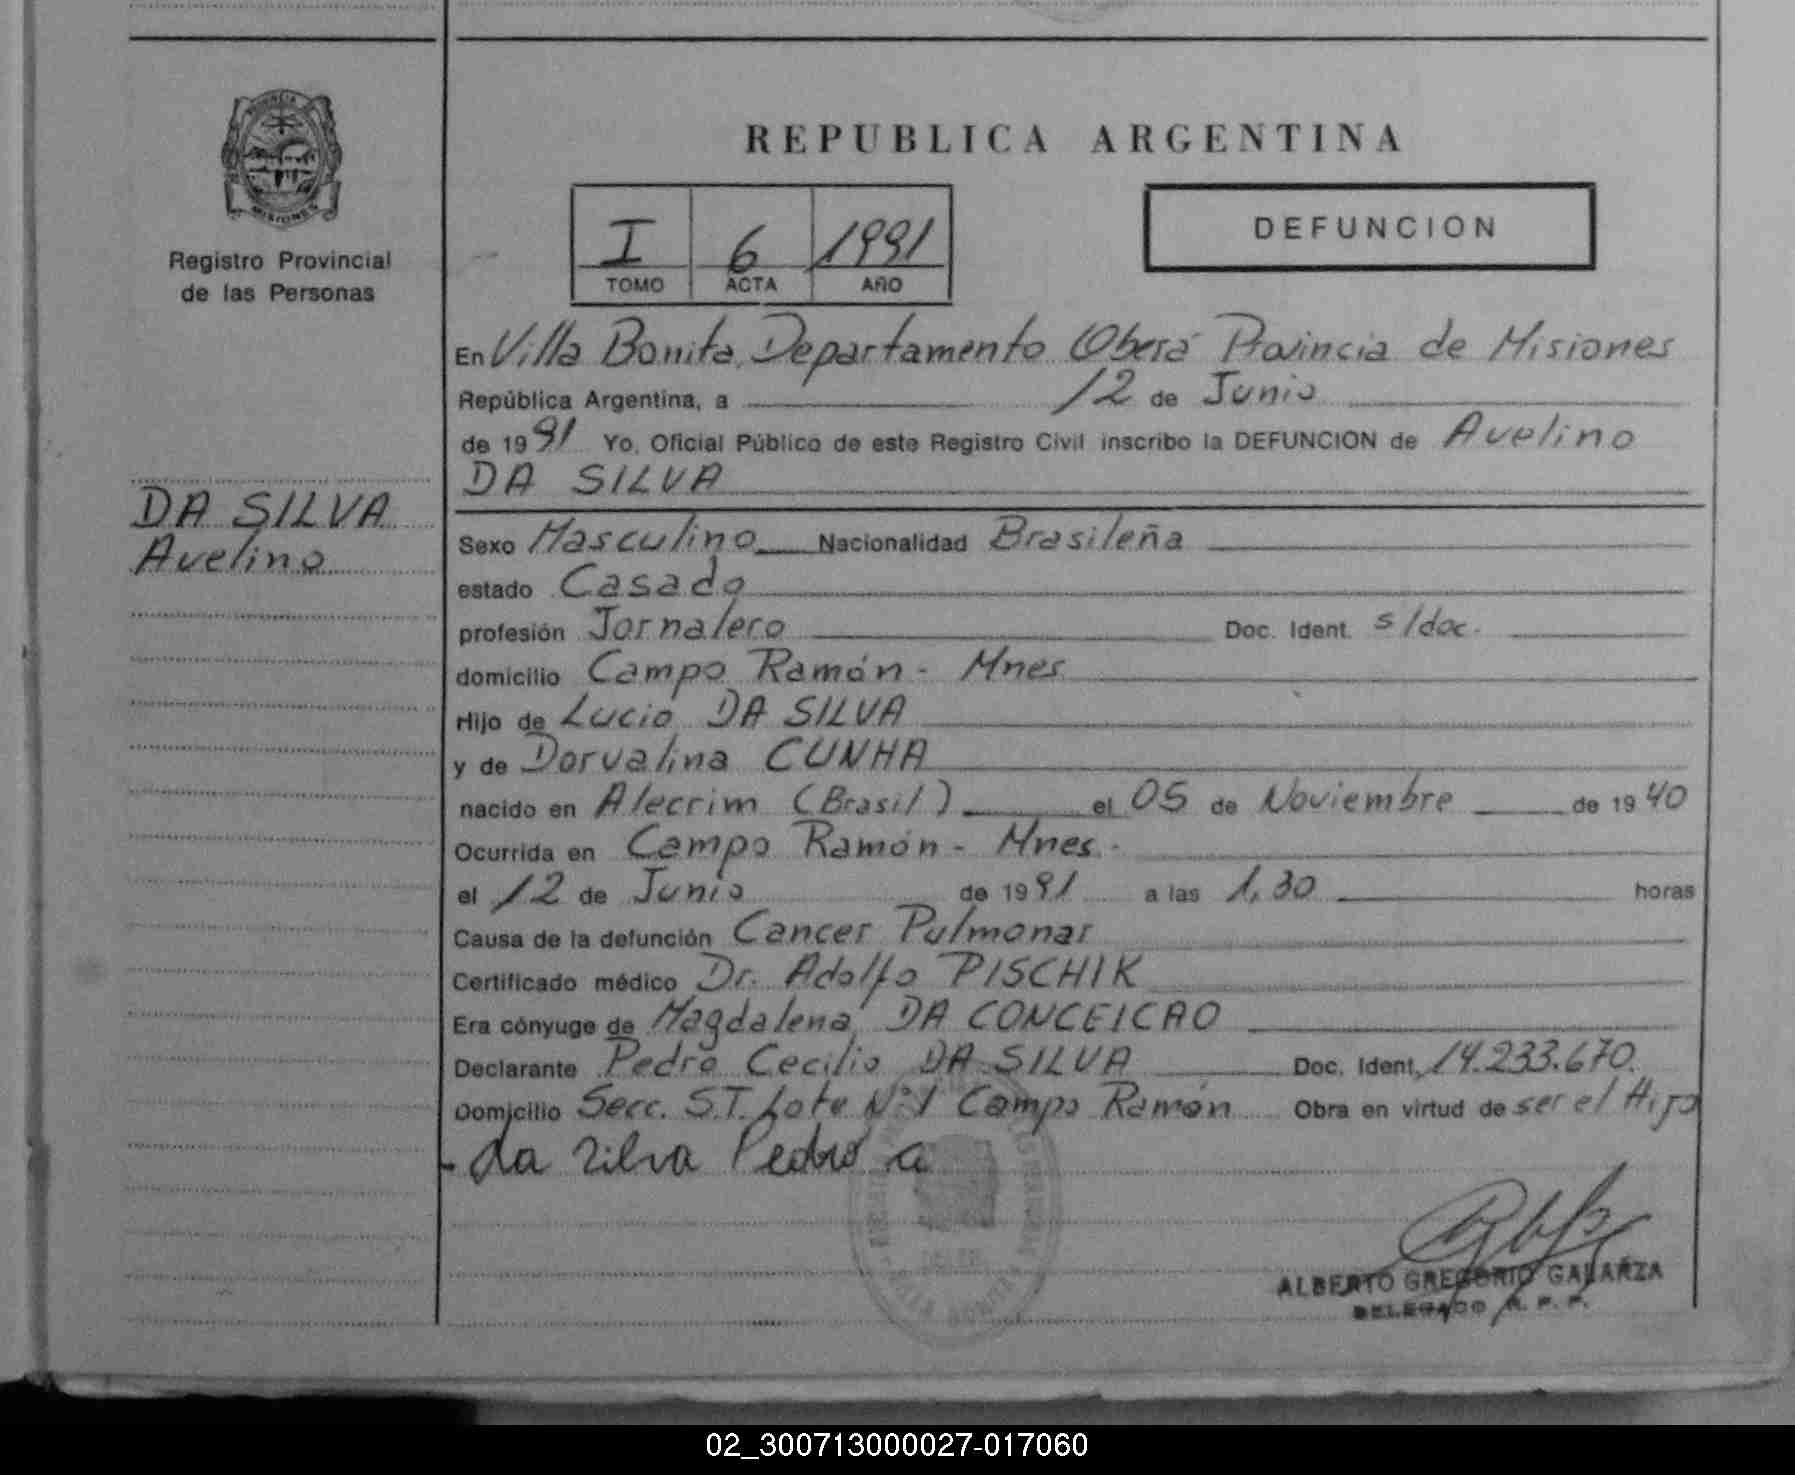 PROVINCIA DE
MISIONES
Registro Provincial
de las Personas
DA SILVA
Avelino
REPUBLICA ARGENTINA
I 6 1991
TOMO ACTA AÑO
DEFUNCION
En Villa Bonita, Departamento Oberá Provincia de Misiones
República Argentina, a 12 de Junio
de 1991 Yo, Oficial Público de este Registro Civil inscribo la DEFUNCION de Avelino
DA SILVA
Sexo Masculino Nacionalidad Brasileña
estado Casado
profesión Jornalero Doc. Ident. s/doc.
domicilio Campo Ramón - Mnes
Hijo de Lucio DA SILVA
y de Dorvalina CUNHA
nacido en Alecrim (Brasil) el 05 de Noviembre de 1940
Ocurrida en Campo Ramón - Mnes.-
el 12 de Junio de 1991 a las 1,30 horas
Causa de la defunción Cancer Pulmonar
Certificado médico Dr. Adolfo PISCHIK
Era cónyuge de Magdalena DA CONCEICAO
Declarante Pedro Cecilio DA SILVA Doc. Ident. 14.233.670.
Domicilio Secc. S.T. Lote Nº1 Campo Ramón Obra en virtud de ser el Hijo
- da Silva Pedro a
ALBERTO GREGORIO GALARZA
DELEGADO R. P. P.
02_300713000027-017060